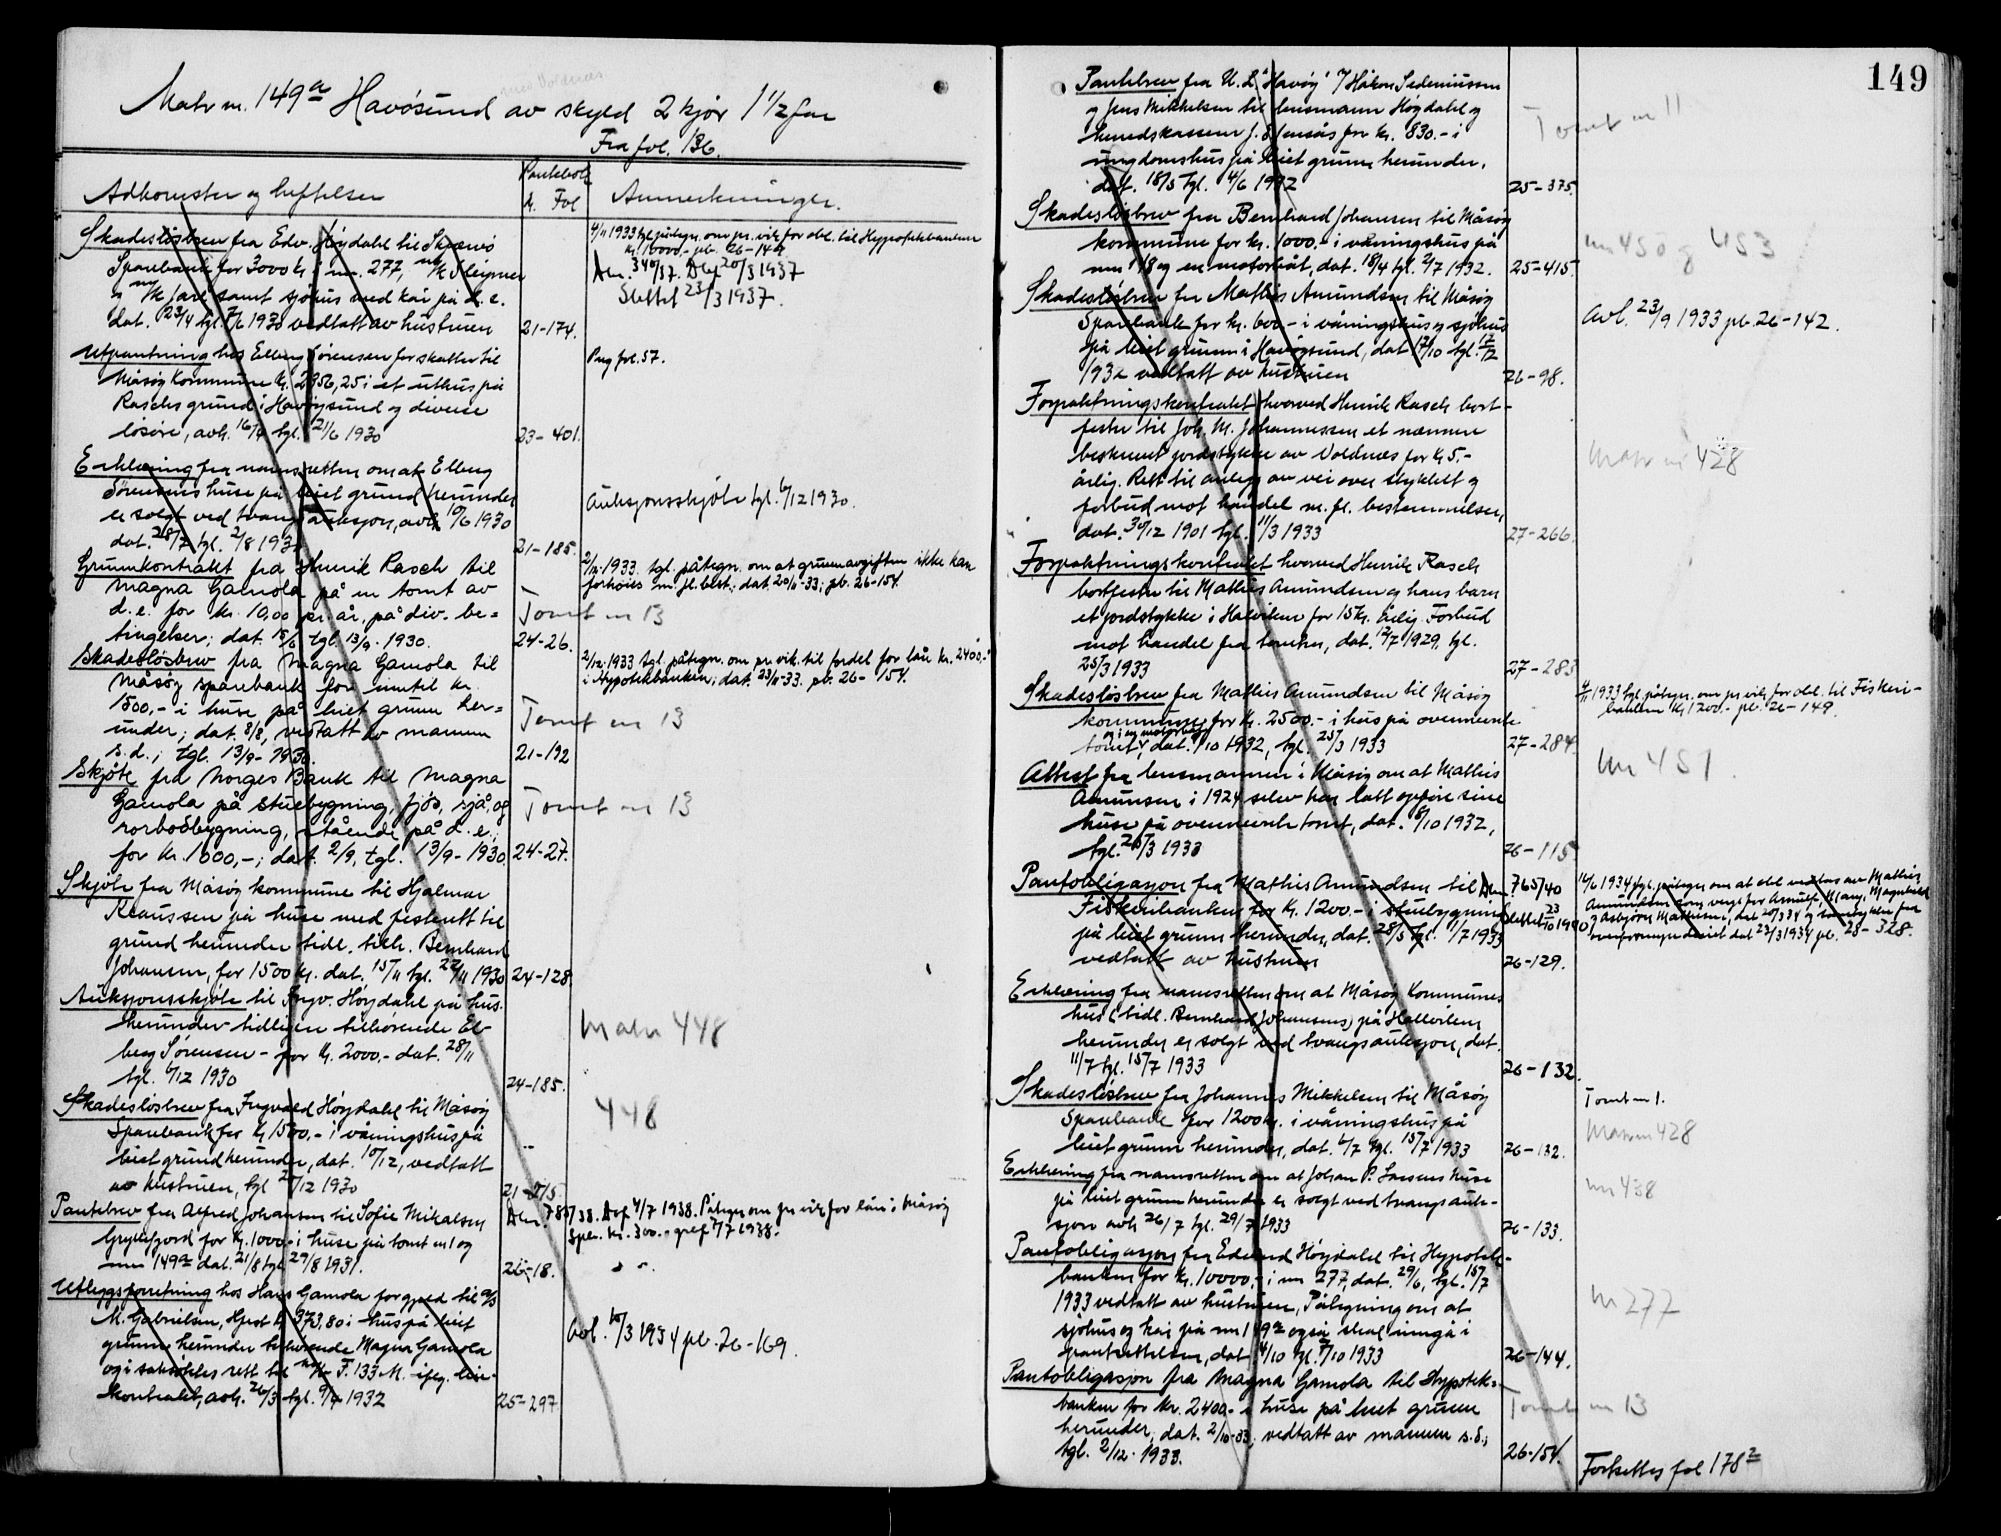 med Voldnæs
Matr nr. 149a Havøsund av skyld 2 kjør 1 1/2 far
Fra fol. 136.
Adkomster og heftelser
Pantebok
L. Fol
Anmerkninger.
Skadesløsbrev fra Edv. Høydahl til Skjervø
Sparebank for 3000 kr i nr. 277,
samt sjøhus med kai på d. e.
dat. 23/4 tgl 7/6 1930 vedtatt av hustruen 21-174.
4/11 1933 tgl påtegn. om pr. vik for obl. til Hypotekbanken
kr. 10000.- pb. 26-149.
Dnr. 340/37. Dat 20/3 1937
Slettet 23/3 1937.
Utpantning hos Elberg Sørensen for skatter til
Måsøy Kommune kr. 2356,25 i et uthus på
Raschs grund i Havøysund og diverse
løsøre, avh. 16/4 tgl. 21/6 1930 23-401.
Png fol. 57.
Erklæring fra namsretten om at Elberg
Sørensens huse på leiet grund herunder
er solgt ved tvangsauksjon, avh 10/6 1930
dat. 28/7 tgl. 2/8 1930 21-185.
Auksjonsskjøte tgl. 6/12 1930.
Grunnkontrakt fra Henrik Rasch til
Magna Gamola på en tomt av
d. e. for kr. 10,00 pr. år, på div. be=
tingelser; dat. 15/6 tgl 13/9. 1930. 24-26.
2/12. 1933. tgl. påtegn. om at grunnavgiften ikke kan
forhøies m. fl. best.; dat. 20/11-33; pb. 26-154.
Tomt nr 13
Skadesløsbrev fra Magna Gamola til
Måsøy sparebank for inntil kr.
1500,- i huse på leiet grunn her=
under; dat. 8/8, vedtatt av mannen
s. d.; tgl. 13/9- 1930. 21-192
2/12. 1933 tgl. påtegn. om pr. vik. til fordel for lån kr. 2400,-
i Hypotekbanken; dat. 23/11-33. pb. 26-154.
Tomt nr 13
Skjøte fra Norges Bank til Magna
Gamola på stuebygning, fjøs, sjå, og
rorbodbygning, stående på d. e.;
for kr. 1000,-; dat. 2/9, tgl. 13/9-1930 24-27.
Tomt nr 13
Skjøte fra Måsøy kommune til Hjalmar
Klaussen på huse med festerett til
grund herunder tidl. tilh. Bernhard
Johansen, for 1500 kr. dat. 15/11 tgl. 22/11 1930 24-128.
Auksjonsskjøte til Ingv. Høydahl på hus
herunder tidligere tilhørende El-
berg Sørensen - for kr. 2000.- dat. 28/11
tgl. 6/12 1930 24-185.
Matr 448
Skadesløsbrev fra Ingvald Høydahl til Måsøy
Sparebank for kr 1500.- i våningshus på
leiet grund herunder, dat. 10/12, vedtatt
av hustruen, tgl /12 1930 21-215.
448
Pantebrev fra Alfred Johansen til Sofie Mikalsen
Gryllefjord for kr. 1000.- i huse på tomt nr 1 og
mnr 149a dat. 21/8 tgl 29/8 1931. 26-18.
Dnr. 785/38. Dat 4/7 1938. Påtegn om pr vik for lån i Måsøy
Spb. kr. 300.-
Utleggsforretning hos Hans Gamola for gjeld til A/S
M. Gabrielsen, Hfest kr 373,80 i hus på leiet
grunn herunder tilhørende Magna Gamola
og i saksøktes rett til m/k F. 133 M. ifølg. leie-
kontrakt, avh. 26/3 tgl. 9/4 1932 25-297
Avl. /3 1934 pb. 26-169.
149
Pantebrev fra U. L. "Havøy" v/ Håkon Sedeniussen
og Jens Mikkelsen til lensmann Høydahl og
herredskasserer J. for kr. 830.- i
ungdomshus på leiet grunn herunder.
dat. 18/5 tgl. 4/6 1932 25-375.
Tomt nr 11
Skadesløsbrev fra Bernhard Johansen til Måsøy
kommune for kr. 1000.- i våningshus på
og en motorbåt, dat. 18/4 tgl. 2/7 1932. 25-415.
nr 450 og 453
Skadesløsbrev fra Mathis Amundsen til Måsøy
Sparebank for kr. 600.- i våningshus og sjøhus
på leiet grunn i Havøysund, dat /10 tgl. 17/12
1932 vedtatt av hustruen 26-98.
Avl. 23/9 1933 pb. 26-142.
Forpaktningskontrakt hvorved Henrik Rasch bort-
fester til Joh. M. Johannessen et nærmere
beskrevet jordstykke av Voldnes for kr 5.-
årlig. Rett til anlegg av vei over stykket og
forbud mot handel m. fl. bestemmelser,
dat. 30/12 1901 tgl. 11/3 1933 27-266.
Matr nr 428
Forpaktningskontrakt hvorved Henrik Rasch
bortfester til Mathis Amundsen og hans barn
et jordstykke i Hallviken for 15 kr. årlig. Forbud
mot handel fra tomten, dat. 12/7 1929, tgl.
25/3 1933 27-283
Skadesløsbrev fra Mathis Amundsen til Måsøy
kommune for kr. 2500.- i hus på ovennevnte
tomt, og i en motorbåt dat. /10 1932, tgl. 25/3 1933 27-284.
4/11 1933 tgl. påtegn. om pr vik for obl. til Fiskeri-
banken kr 1200.- pb. 26-149.
nr 451.
Attest fra lensmannen i Måsøy om at Mathis
Amunsen i 1924 selv har latt opføre sine
huse på ovennevnte tomt, dat. 8/10 1932,
tgl. 25/3 1933 26-115
Pantobligasjon fra Mathis Amundsen til
Fiskeribanken for kr. 1200.- i stuebygning
på leiet grunn herunder, dat. 28/5 tgl. 1/7 1933
vedtatt av hustruen 26-129.
Dnr 765/40
Slettet 23/10 1940
16/6 1934 tgl. påtegn om at obl vedtas av Mathis
Amundsen som verge for Arnulf, Mary, Magnhild
og Asbjørn Mathisen, dat 20/3 34 og samtykke fra
overformynderiet dat 22/3 1934 pb. 28-328.
Erklæring fra namsretten om at Måsøy Kommunes
hus (tidl. Bernhard Johansens) på Hallviken
herunder er solgt ved tvangsauksjon, dat.
11/7 tgl. 15/7 1933 26-132.
Skadesløsbrev fra Johannes Mikkelsen til Måsøy
Sparebank for 1200 kr. i våningshus på
leiet grunn herunder, dat. 6/7 tgl. 15/7 1933 26-132.
Tomt nr 1.
Matr nr 428
Erklæring fra namsretten om at Johan P. Larsens huse
på leiet grunn herunder er solgt ved tvangsauk-
sjon avh 26/7 tgl. 29/7 1933 26-133.
nr 438
Pantobligasjon fra Edvard Høydahl til Hypotek-
banken for kr. 10000,- i nr 277, dat. 29/6, tgl. 15/7
1933 vedtatt av hustruen, Påtegning om at
sjøhus og kai på mnr 149a også skal inngå i
pantsettelsen, dat. 4/10 tgl. 7/10 1933 26-144.
nr 277
Pantobligasjon fra Magna Gamola til Hypotek=
banken for kr. 2400,- i huse på leiet grunn
herunder, dat. 2/10-33; vedtatt av mannen s. d.;
tgl. 2/12. 1933. 26-154.
Tomt nr 13
Fortsettes fol 178 2